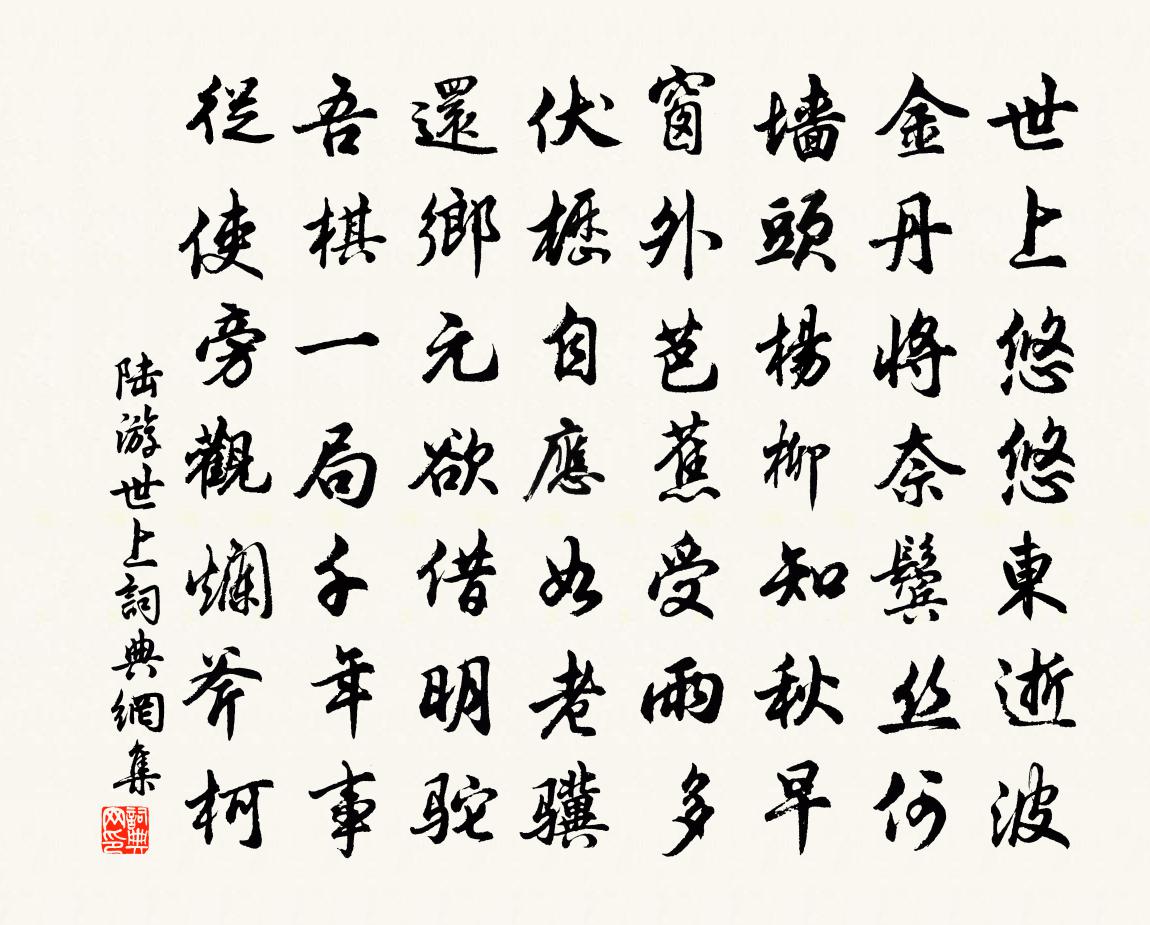 世上悠悠東逝波
金丹将奈鬓丝何
墙頭楊柳知秋早
窗外芭蕉受雨多
伏櫪自應如老骥
還鄉元欲借明駝
吾棋一局千年事
從使旁觀爛斧柯
陆游世上詞典網集
詞典网印